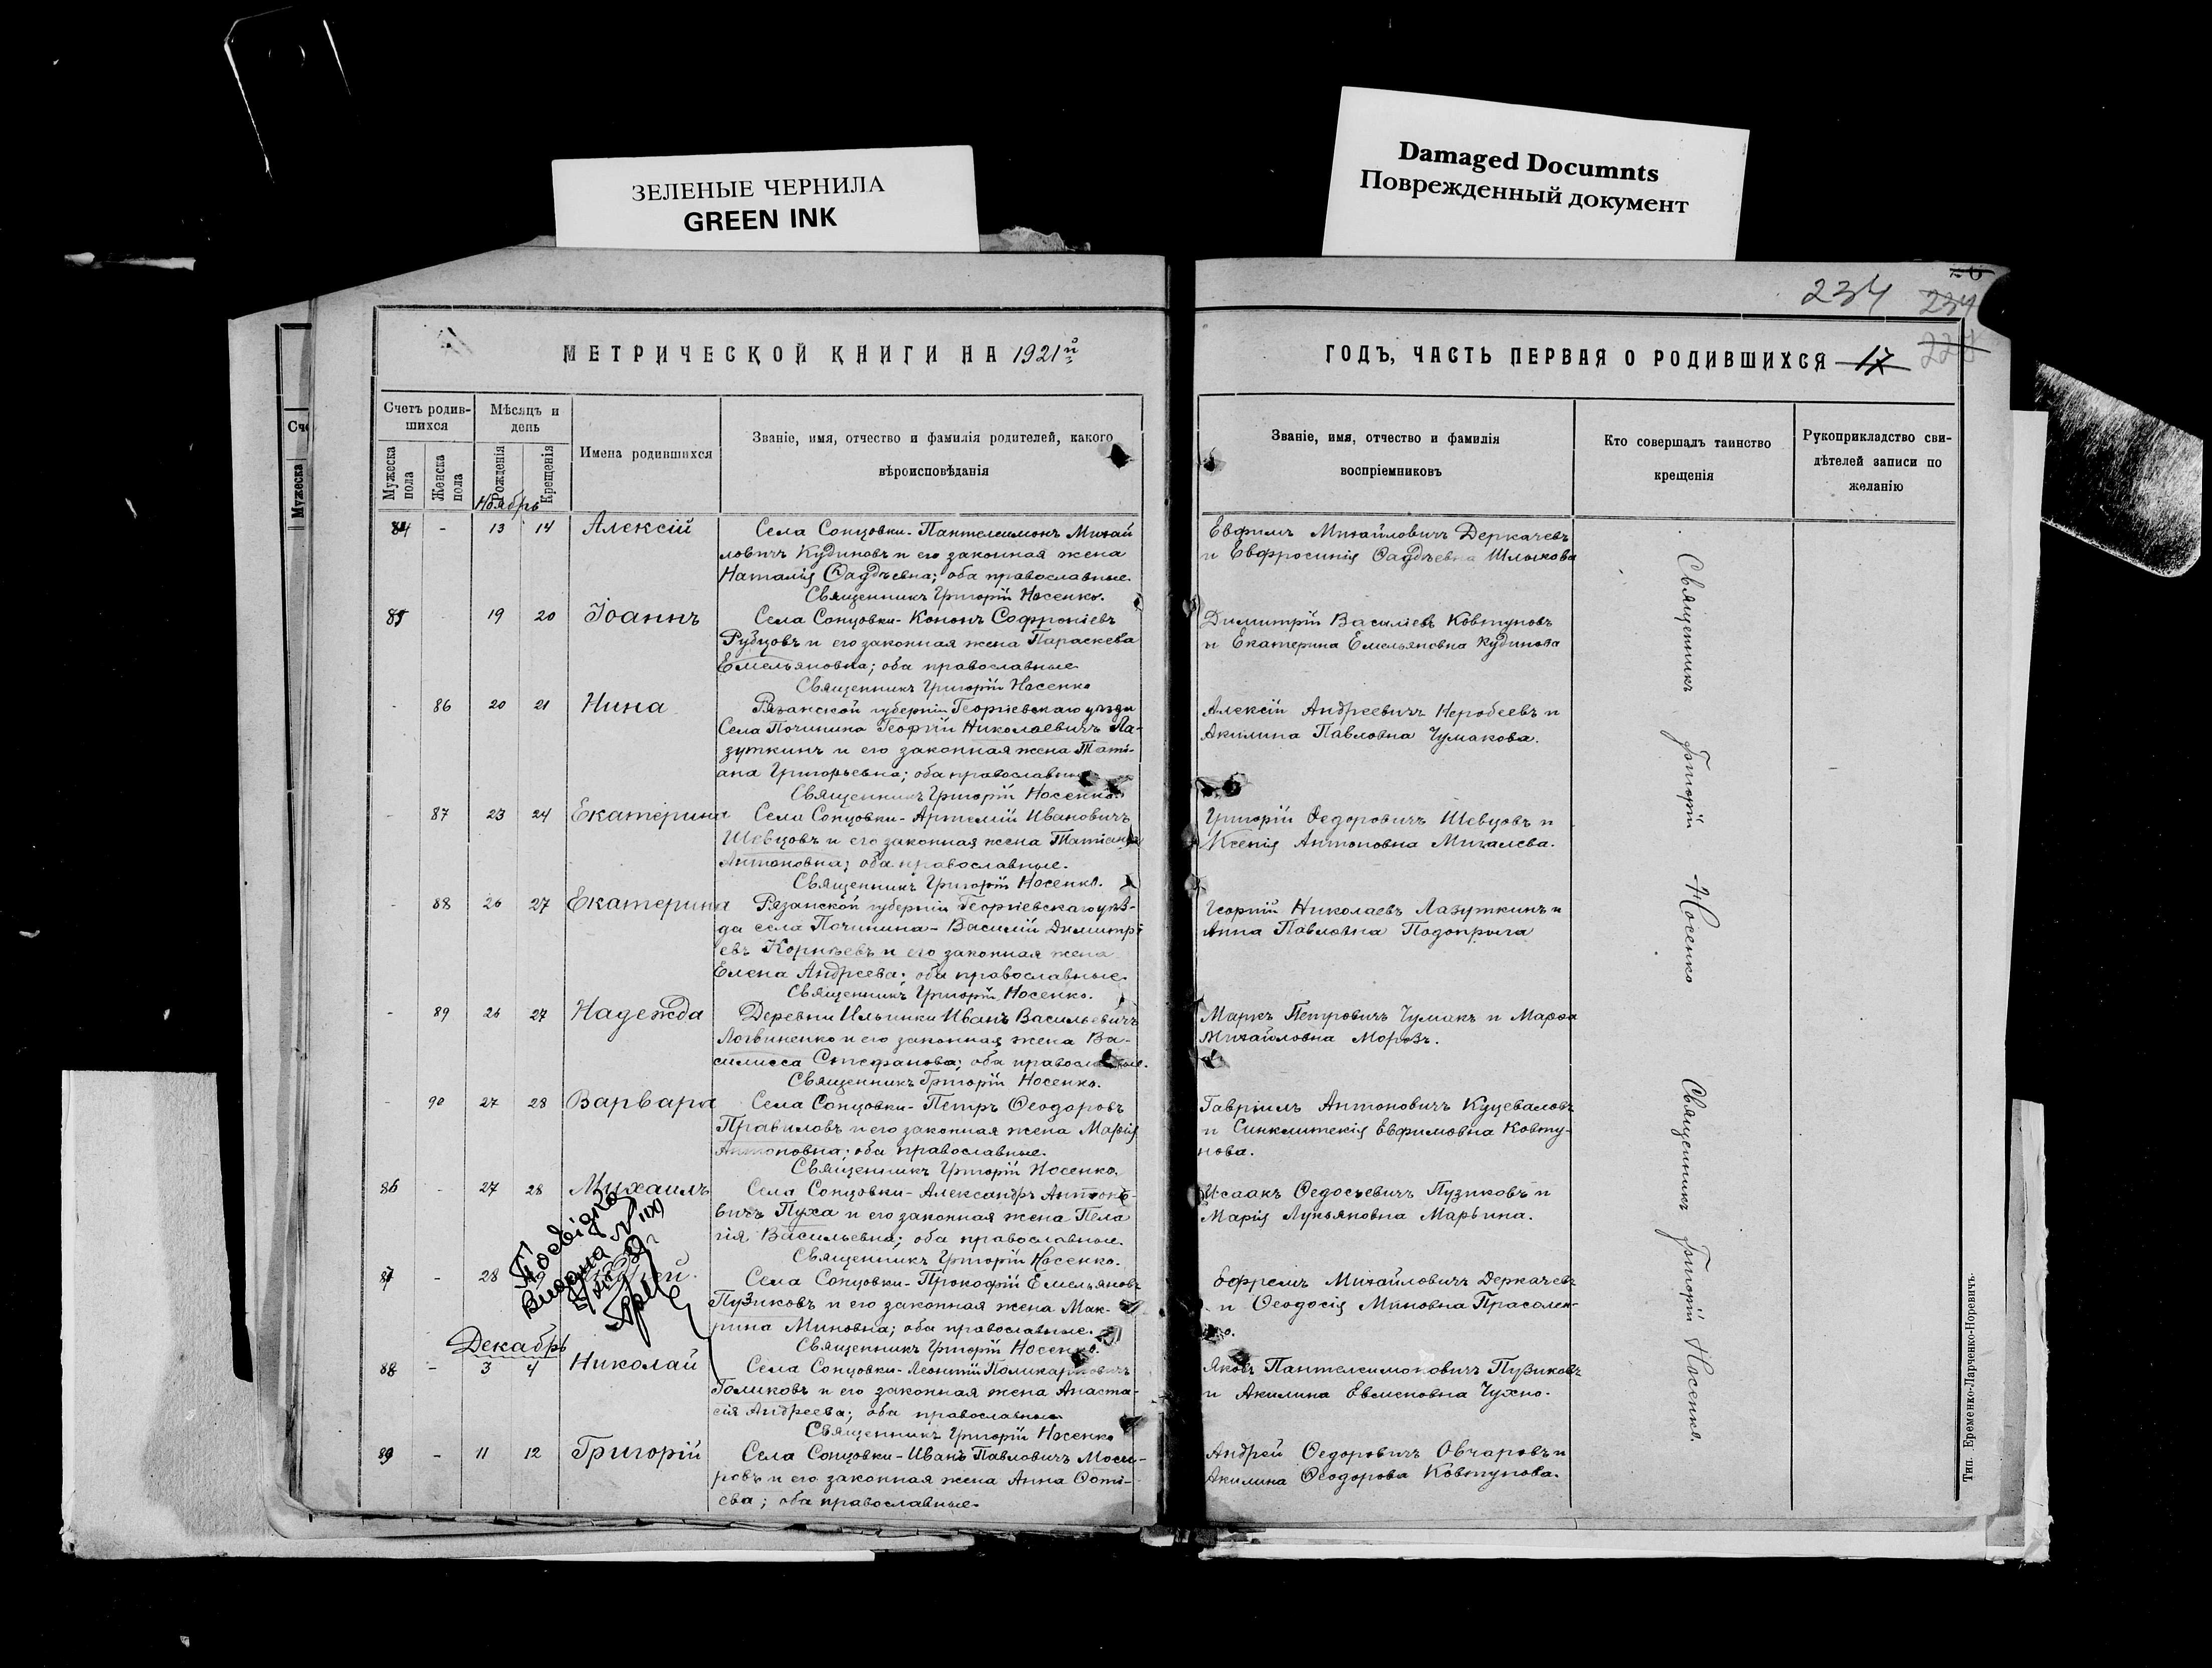 ЗЕЛЕНЫЕ ЧЕРНИЛА
GREEN INK
Damaged Documnts
Поврежденный документ
234
234
МЕТРИЧЕСКОЙ КНИГИ НА 1921й
Счетъ родив-
шихся
Мужеска пола
Женска пола
Мѣсяцъ и
день
Рожденія
Крещенія
Имена родившихся
Званіе, имя, отчество и фамилія родителей, какого
вѣроисповѣданія
Ноябрь
84 - 13 14 Алексій
Села Сонцовки - Пантелеимонъ Михай
ловичъ Кудиновъ и его законная жена
Наталія Ѳаддѣевна; оба православные.
Священникъ Григорій Носенко.
85 19 20 Іоаннъ
Села Сонцовки - Кононъ Софроніевъ
Рубцовъ и его законная жена Параскева
Емельяновна; оба православные
Священникъ Григорій Носенко
- 86 20 21 Нина
Рязанской губерніи Георгіевскаго уѣзда
Села Починина Георгій Николаевичъ Ла-
зуткинъ и его законная жена Тати-
ана Григорьевна; оба православные
Священникъ Григорій Носенко.
- 87 23 24 Екатерина
Села Сонцовки - Артемій Ивановичъ
Шевцовъ и его законная жена Татіана
Антоновна; оба православные.
Священникъ Григорій Носенко.
- 88 26 27 Екатерина
Рязанской губерніи Георгіевскаго уѣз-
да села Починина - Василій Димитрі
евъ Корнѣевъ и его законная жена
Елена Андреева; оба православные.
Священникъ Григорій Носенко.
- 89 26 27 Надежда
Деревни Ильинки Иванъ Васильевичъ
Логвиненко и его законная жена Ва-
силисса Стефанова; оба православные.
Священникъ Григорій Носенко.
- 90 27 28 Варвара
Села Сонцовки - Петръ Ѳеодоровъ
Правиловъ и его законная жена Марія
Антоновна; оба православные.
Священникъ Григорій Носенко.
86 - 27 28 Михаилъ
Села Сонцовки - Александръ Антоно-
вичъ Пуха и его законная жена Пела
гія Васильевна; оба православные.
Священникъ Григорій Носенко.
87 - 28
Села Сонцовки - Прокофій Емельяновъ
Пузиковъ и его законная жена Мак-
рина Миновна; оба православные.
Священникъ Григорій Носенко.
Декабрь
88 - 3 4 Николай
Села Сонцовки - Леонтій Поликарповичъ
Голиковъ и его законная жена Анаста-
сія Андреева; оба православные
Священникъ Григорій Носенко
89 - 11 12 Григорій
Села Сонцовки - Иванъ Павловичъ
ровъ и его законная жена Анна Фоті-
ева; оба православные.
ГОДЪ, ЧАСТЬ ПЕРВАЯ О РОДИВШИХСЯ 17
Званіе, имя, отчество и фамилія
воспріемниковъ
Кто совершалъ таинство
крещенія
Рукоприкладство сви-
дѣтелей записи по
желанію
Евфимъ Михайловичъ Деркачевъ
и Евфросинія Ѳаддѣевна Шлыкова
Димитрій Василіевъ Ковтуновъ
и Екатерина Емельяновна Кудинова
Алексій Андреевичъ Неробеевъ и
Акилина Павловна Чумакова.
Григорій Федоровичъ Шевцовъ и
Ксенія Антоновна Михалева.
Георгій Николаевъ Лазуткинъ и
Анна Павловна Подопрыга
Маркъ Петровичъ Чумакъ и Марѳа
Михайловна Морозъ.
Гавріилъ Антоновичъ Куцеваловъ
и Синклитекія Евфимовна Ковту-
нова.
Исаакъ Ѳедосѣевичъ Пузиковъ и
Марія Лукьяновна Марьина.
Ефремъ Михайловичъ Деркачевъ
и Ѳеодосія Миновна Прасолен-
ко.
Яковъ Пантелеимоновичъ Пузиковъ
и Акилина Евменовна Чухно.
Андрей Ѳедоровичъ Овчаровъ и
Акилина Ѳеодорова Ковтунова.
Священникъ Григорій Носенко
Священникъ Григорій Носенко.
Тип. Еременко-Ларченко-Норевичъ.